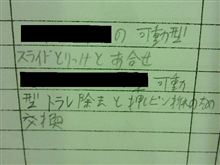 の可動型
スライドとりつけとあ合せ
可動
型トラレ除去と押しピン折れのため
交換